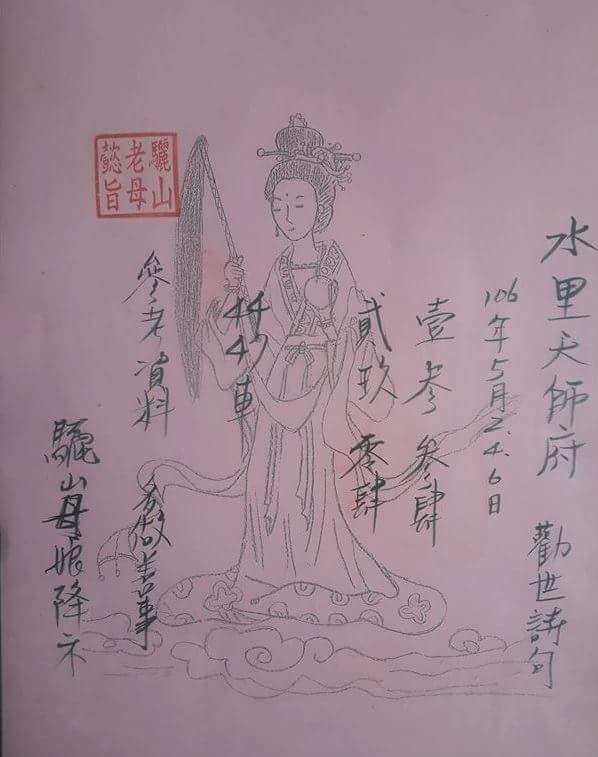 水里天師府 勸世詩句
106年5月2.4.6日
壹參 參肆
貳玖 零肆
44 47車
參考資料 多做善事
驪山母娘降示
驪山老母懿旨